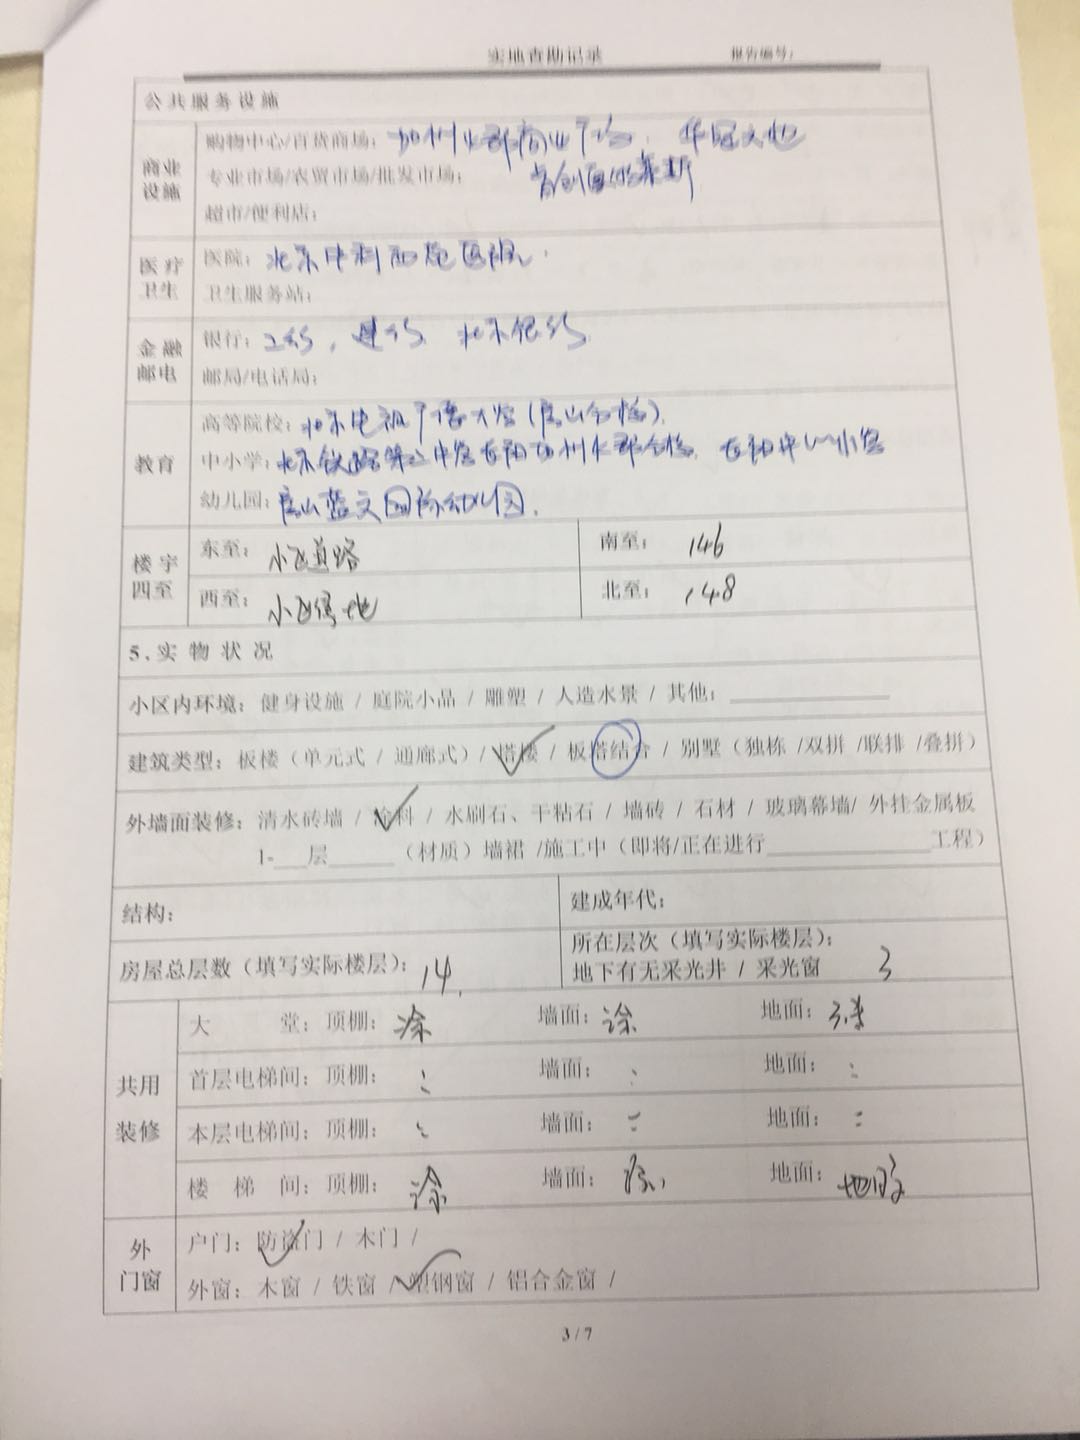 实地查勘记录 报告编号：
公共服务设施
商业设施
购物中心/百货商场：加州水郡商业广场、华冠天地
专业市场/农贸市场/批发市场：首创奥特莱斯
超市/便利店：
医疗卫生
医院：北京中科西苑医院.
卫生服务站：
金融邮电
银行：工行，建行、北京银行
邮局/电话局：
教育
高等院校：北京电视广播大学（房山分校）.
中小学：北京铁路第二中学长阳加州水郡分校、长阳中心小学
幼儿园：房山蓝天国际幼儿园.
楼宇四至
东至：小区道路 南至：146
西至：小区绿地 北至：148
5.实物状况
小区内环境：健身设施 / 庭院小品 / 雕塑 / 人造水景 / 其他：
建筑类型：板楼（单元式 / 通廊式）/ 塔楼 / 板塔结合 / 别墅（独栋 /双拼 /联排 /叠拼）
外墙面装修：清水砖墙 / 涂料 / 水刷石、干粘石 / 墙砖 / 石材 / 玻璃幕墙/ 外挂金属板
1-___层______（材质）墙裙 /施工中（即将/正在进行______________工程）
结构： 建成年代：
房屋总层数（填写实际楼层）：14. 所在层次（填写实际楼层）：
地下有无采光井 / 采光窗 3
共用装修
大堂：顶棚：涂 墙面：涂 地面：
首层电梯间：顶棚： 墙面： 地面：
本层电梯间：顶棚： 墙面： 地面：
楼梯间：顶棚：涂 墙面：涂 地面：地砖
外门窗
户门：防盗门 / 木门 /
外窗：木窗 / 铁窗 / 塑钢窗 / 铝合金窗 /
3 / 7